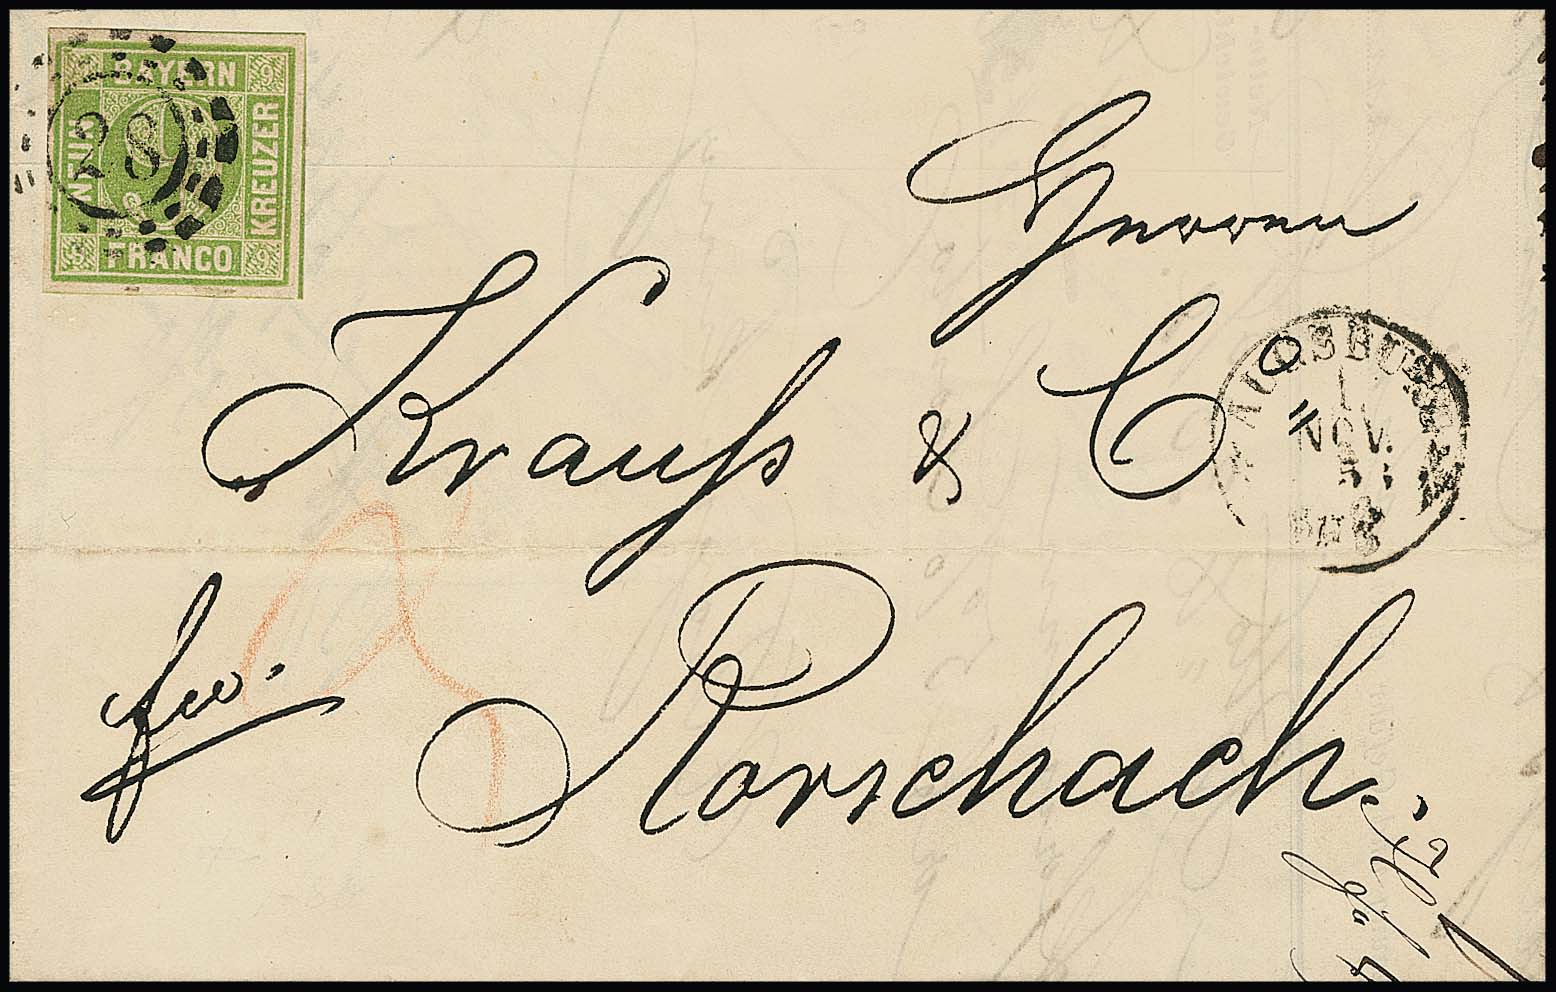 BAYERN
NEUN
KREUZER
FRANCO
9 9 9 9
28
Herren
Krauss & Co
AUGSBURG
1
NOV.
frco.
Rorschach.